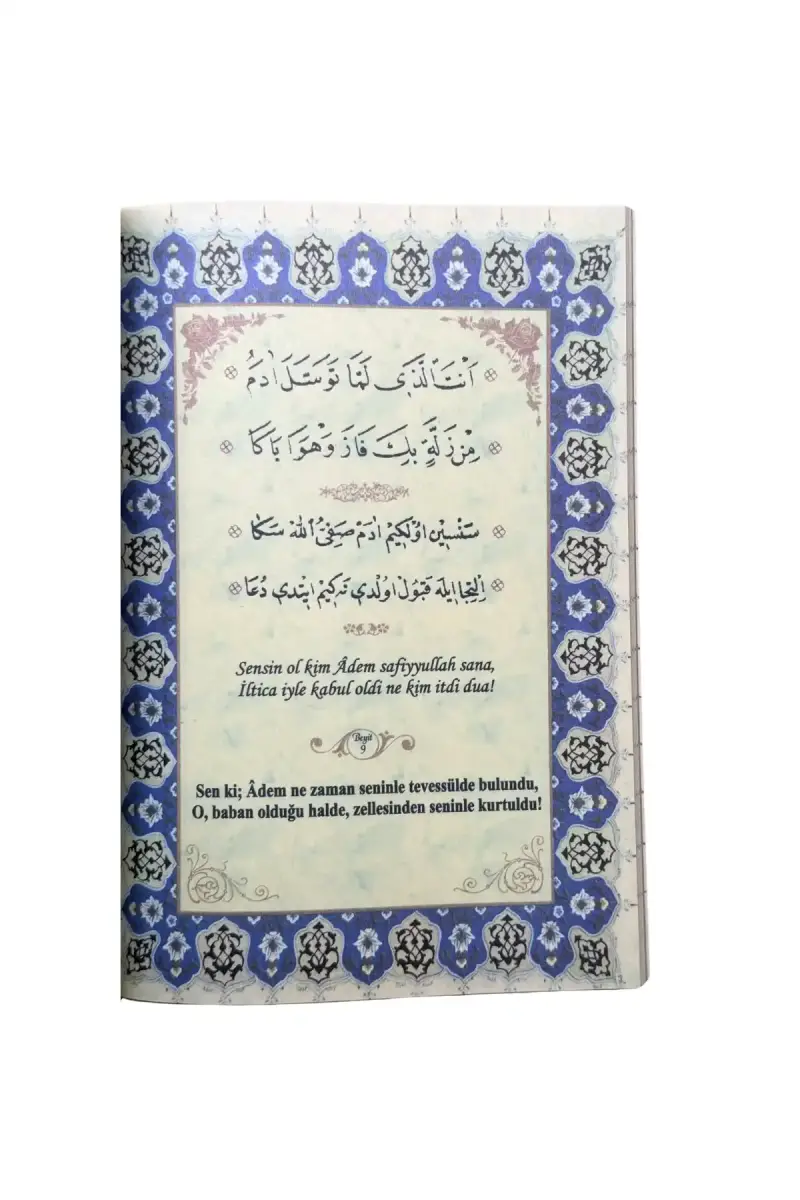 اَنْتَ الَّذٖى لَمَّا تَوَسَّلَ اٰدَمُ
مِنْ زَلَّةٍ بِكَ فَازَ وَهْوَ اَبَاكَا
سَنْسِينْ اوُلْكِيمْ اٰدَمْ صَفِىُّ اللّٰهْ سَكَا
اِلْتِجَا ايلَه قَبُولْ اوُلْدِى نَه كِيمْ ايتْدِى دُعَا
Sensin ol kim Âdem safiyyullah sana,
İltica iyle kabul oldi ne kim itdi dua!
Beyit
9
Sen ki; Âdem ne zaman seninle tevessülde bulundu,
O, baban olduğu halde, zellesinden seninle kurtuldu!